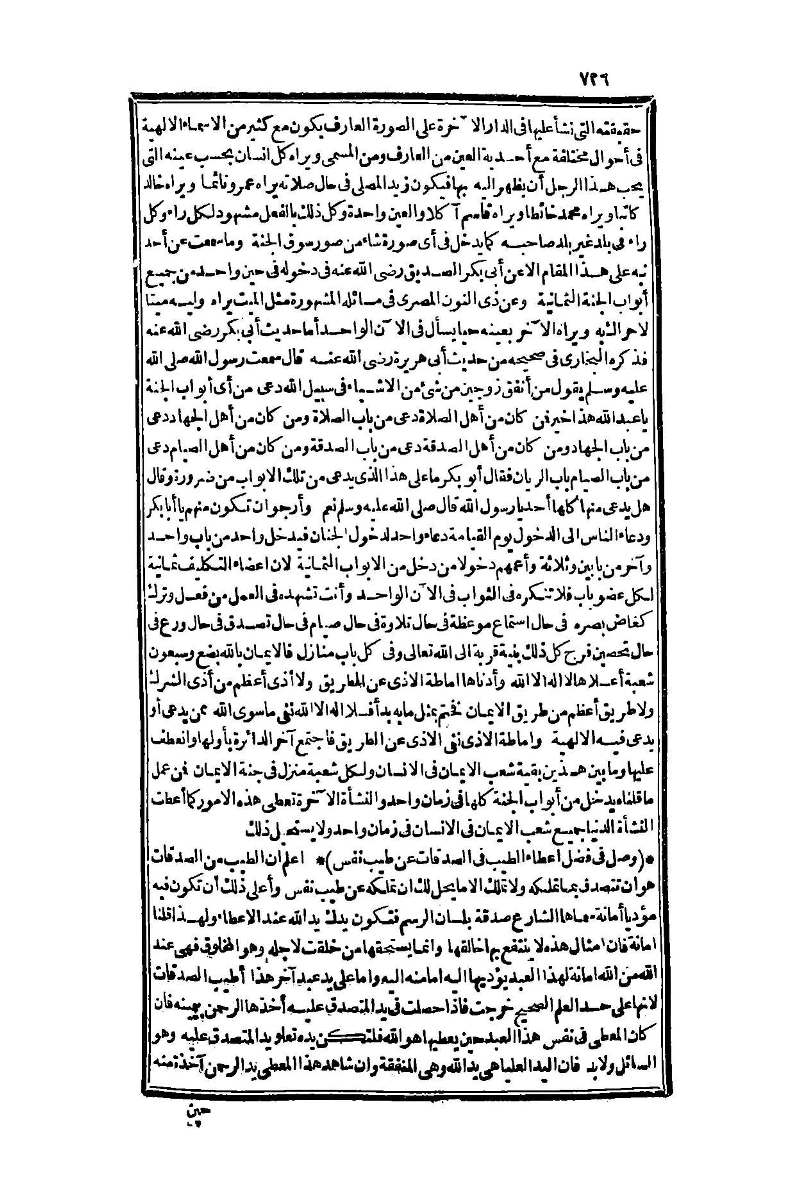 ٧٢٦
حقيقته التي نشأ عليها في الدار الآخرة على الصورة العارف يكون مع كثير من الاسماء الالهية
في أحوال مختلفة مع أحدية العين من العارف ومن المسمى ويراه كل انسان بحسب عينه التي
يجب هذا الرجل أن يظهر اليه بها فيكون زيد المصلى في حال صلاته يراه عمرو نائما ويراه خالد
كاتبا ويراه محمد خائطا ويراه قاسم آكلا والعين واحدة وكل ذلك بالفعل مشهود لكل راء وكل
راء في بلد غير بلد صاحبه كما يدخل في أى صورة شاء من صور سوق الجنة وما سمعت عن أحد
نبه على هذا المقام الا عن أبى بكر الصديق رضى الله عنه في دخوله في حين واحد من جميع
أبواب الجنة الثمانية وعن ذى النون المصرى في مسائله المشهورة مثل الميت يراه وليه ميتا
لا حراك به ويراه الآخر بعينه حيا يسأل في الآن الواحد أما حديث أبى بكر رضى الله عنه
فذكره البخارى في صحيحه من حديث أبى هريرة رضى الله عنه قال سمعت رسول الله صلى الله
عليه وسلم يقول من أنفق زوجين من شئ من الاشياء في سبيل الله دعى من أى أبواب الجنة
يا عبد الله هذا خير فمن كان من أهل الصلاة دعى من باب الصلاة ومن كان من أهل الجهاد دعى
من باب الجهاد ومن كان من أهل الصدقة دعى من باب الصدقة ومن كان من أهل الصيام دعى
من باب الصيام باب الريان فقال أبو بكر ما على هذا الذى يدعى من تلك الابواب من ضرورة وقال
هل يدعى منها كلها أحد يا رسول الله قال صلى الله عليه وسلم نعم وأرجو ان تكون منهم يا أبا بكر
ودعاء الناس الى الدخول يوم القيامة دعاء واحد لدخول الجنان فيدخل واحد من باب واحد
وآخر من بابين وثلاثة وأعمهم دخولا من دخل من الابواب الثمانية لان اعضاء التكليف ثمانية
لكل عضو باب فلا تنكره في الثواب في الآن الواحد وأنت تشهده في العمل من فعل وترك
كغاض بصره في حال استماع موعظة في حال تلاوة في حال صيام في حال تصدق في حال ورع في
حال تحصين فرج كل ذلك بنية قربة الى الله تعالى وفي كل باب منازل فالايمان بالله بضع وسبعون
شعبة أعلاها لا اله الا الله وأدناها اماطة الاذى عن الطريق ولا أذى أعظم من أذى الشرك
ولا طريق أعظم من طريق الايمان فختم بمثل ما به بدأ فلا اله الا الله نفى ما سوى الله ممن يدعى أو
يدعى فيه الالهية واماطة الاذى نفى الاذى عن الطريق فاجتمع آخر الدائرة بأولها وانعطف
عليها وما بين هذين بقية شعب الايمان في الانسان ولكل شعبة منزل في جنة الايمان فمن عمل
ما قلناه يدخل من أبواب الجنة كلها في زمان واحد والنشأة الآخرة تعطى هذه الامور كما أعطت
النشأة الدنيا جميع شعب الايمان في الانسان في زمان واحد ولا يستحيل ذلك
*(وصل في فضل اعطاء الطيب في الصدقات عن طيب نفس)* اعلم ان الطيب من الصدقات
هو ان تتصدق بما تملكه ولا تملك الا ما يحل لك ان تملكه عن طيب نفس وأعلى ذلك أن تكون فيه
مؤديا أمانة سماها الشارع صدقة بلسان الرسم فتكون يدك يد الله عند الاعطاء ولهذا قلنا
امانة فان امثال هذه لا ينتفع بها خالقها وانما يستحقها من خلقت لاجله وهو المخلوق فهى عند
الله من الله امانة لهذا العبد يؤديها اليه اما منه اليه واما على يد عبد آخر هذا أطيب الصدقات
لانها على حد العلم الصحيح خرجت فاذا حصلت في يد المتصدق عليه أخذها الرحمن بيمينه فان
كان المعطى في نفس هذا العبد حين يعطيها هو الله فلتكن يده تعلو يد المتصدق عليه وهو
السائل ولا بد فان اليد العليا هى يد الله وهى المنفقة وان شاهد هذا المعطى يد الرحمن آخذة منه
حين